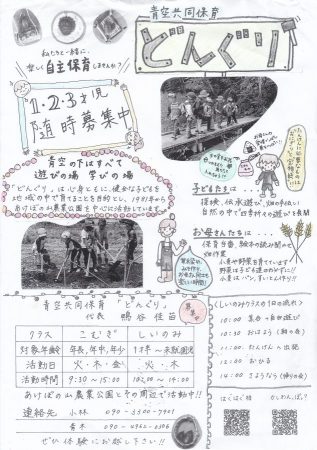 私たちと一緒に、
楽しく自主保育しませんか?
青空共同保育
どんぐり
1・2・3才児
随時募集中
青空の下はすべて
遊びの場 学びの場
「どんぐり」は心身ともに、健全な子どもを
地域の中で育てることを目的とし、1981年から
あけぼの山農業公園を中心に活動しています。
子どもたちは…
探検、伝承遊び、畑のお手伝い
自然の中で四季折々の遊びを展開
お母さんたちは…
保育当番、絵本の読み聞かせ
畑作業
小麦や野菜を育てています
野菜は子ども達のおかずに!!
小麦は…パン、すいとん作り!!
青空共同保育 「どんぐり」
代表 鴨谷佳苗
クラス こむぎ しいのみ
対象年齢 年長、年中、年少 1才半〜未就園児
活動日 火・木・金 火・木
活動時間 9:30〜15:00 10:00〜14:00
あけぼの山農業公園とその周辺で活動中!!
連絡先 小林 090-3300-7901
青木 090-4962-5306
ぜひ体験にお越し下さい!!
〈しいのみクラスの1日の流れ〉
10:00 集合→自由遊び
10:30 おはよう(朝の会)
11:00 たんけんへ出発
12:00 おひる
14:00 さようなら(帰りの会)